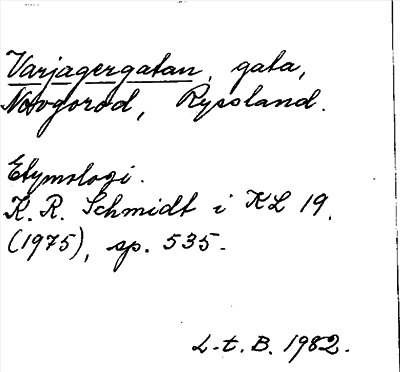 Varjagergatan, gata,
Novgorod, Ryssland.
Etymologi.
K. R. Schmidt i KL 19.
(1975), sp. 535.
L-t. B. 1982.